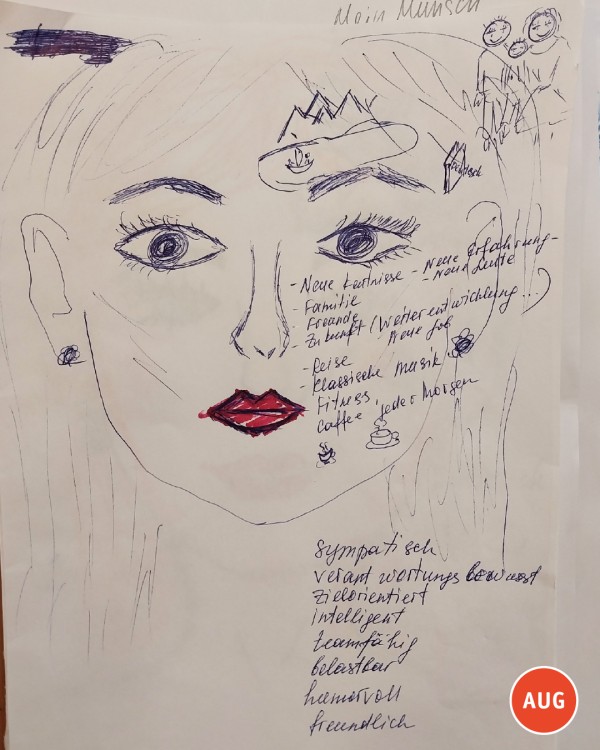 Mein
- Neue Kentnisse - Neue Erfahrung-
- Familie - Neue Leute
- Freunde
- Zukunft / Weiterentwicklung...
- Reise Neue Job
- Klassische Musik
Fitness
Caffee jeder Morgen
sympatisch
verantwortungsbewusst
Zielorientiert
intelligent
teamfähig
belastbar
humorvoll
freundlich
AUG